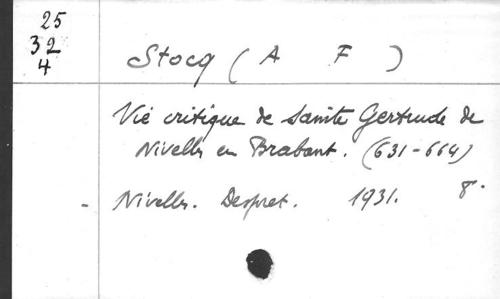 25
32
4
Stocq (A F)
Vie critique de Sainte Gertrude de
Nivelles en Brabant. (631-664)
- Nivelles. Despret. 1931. 8°